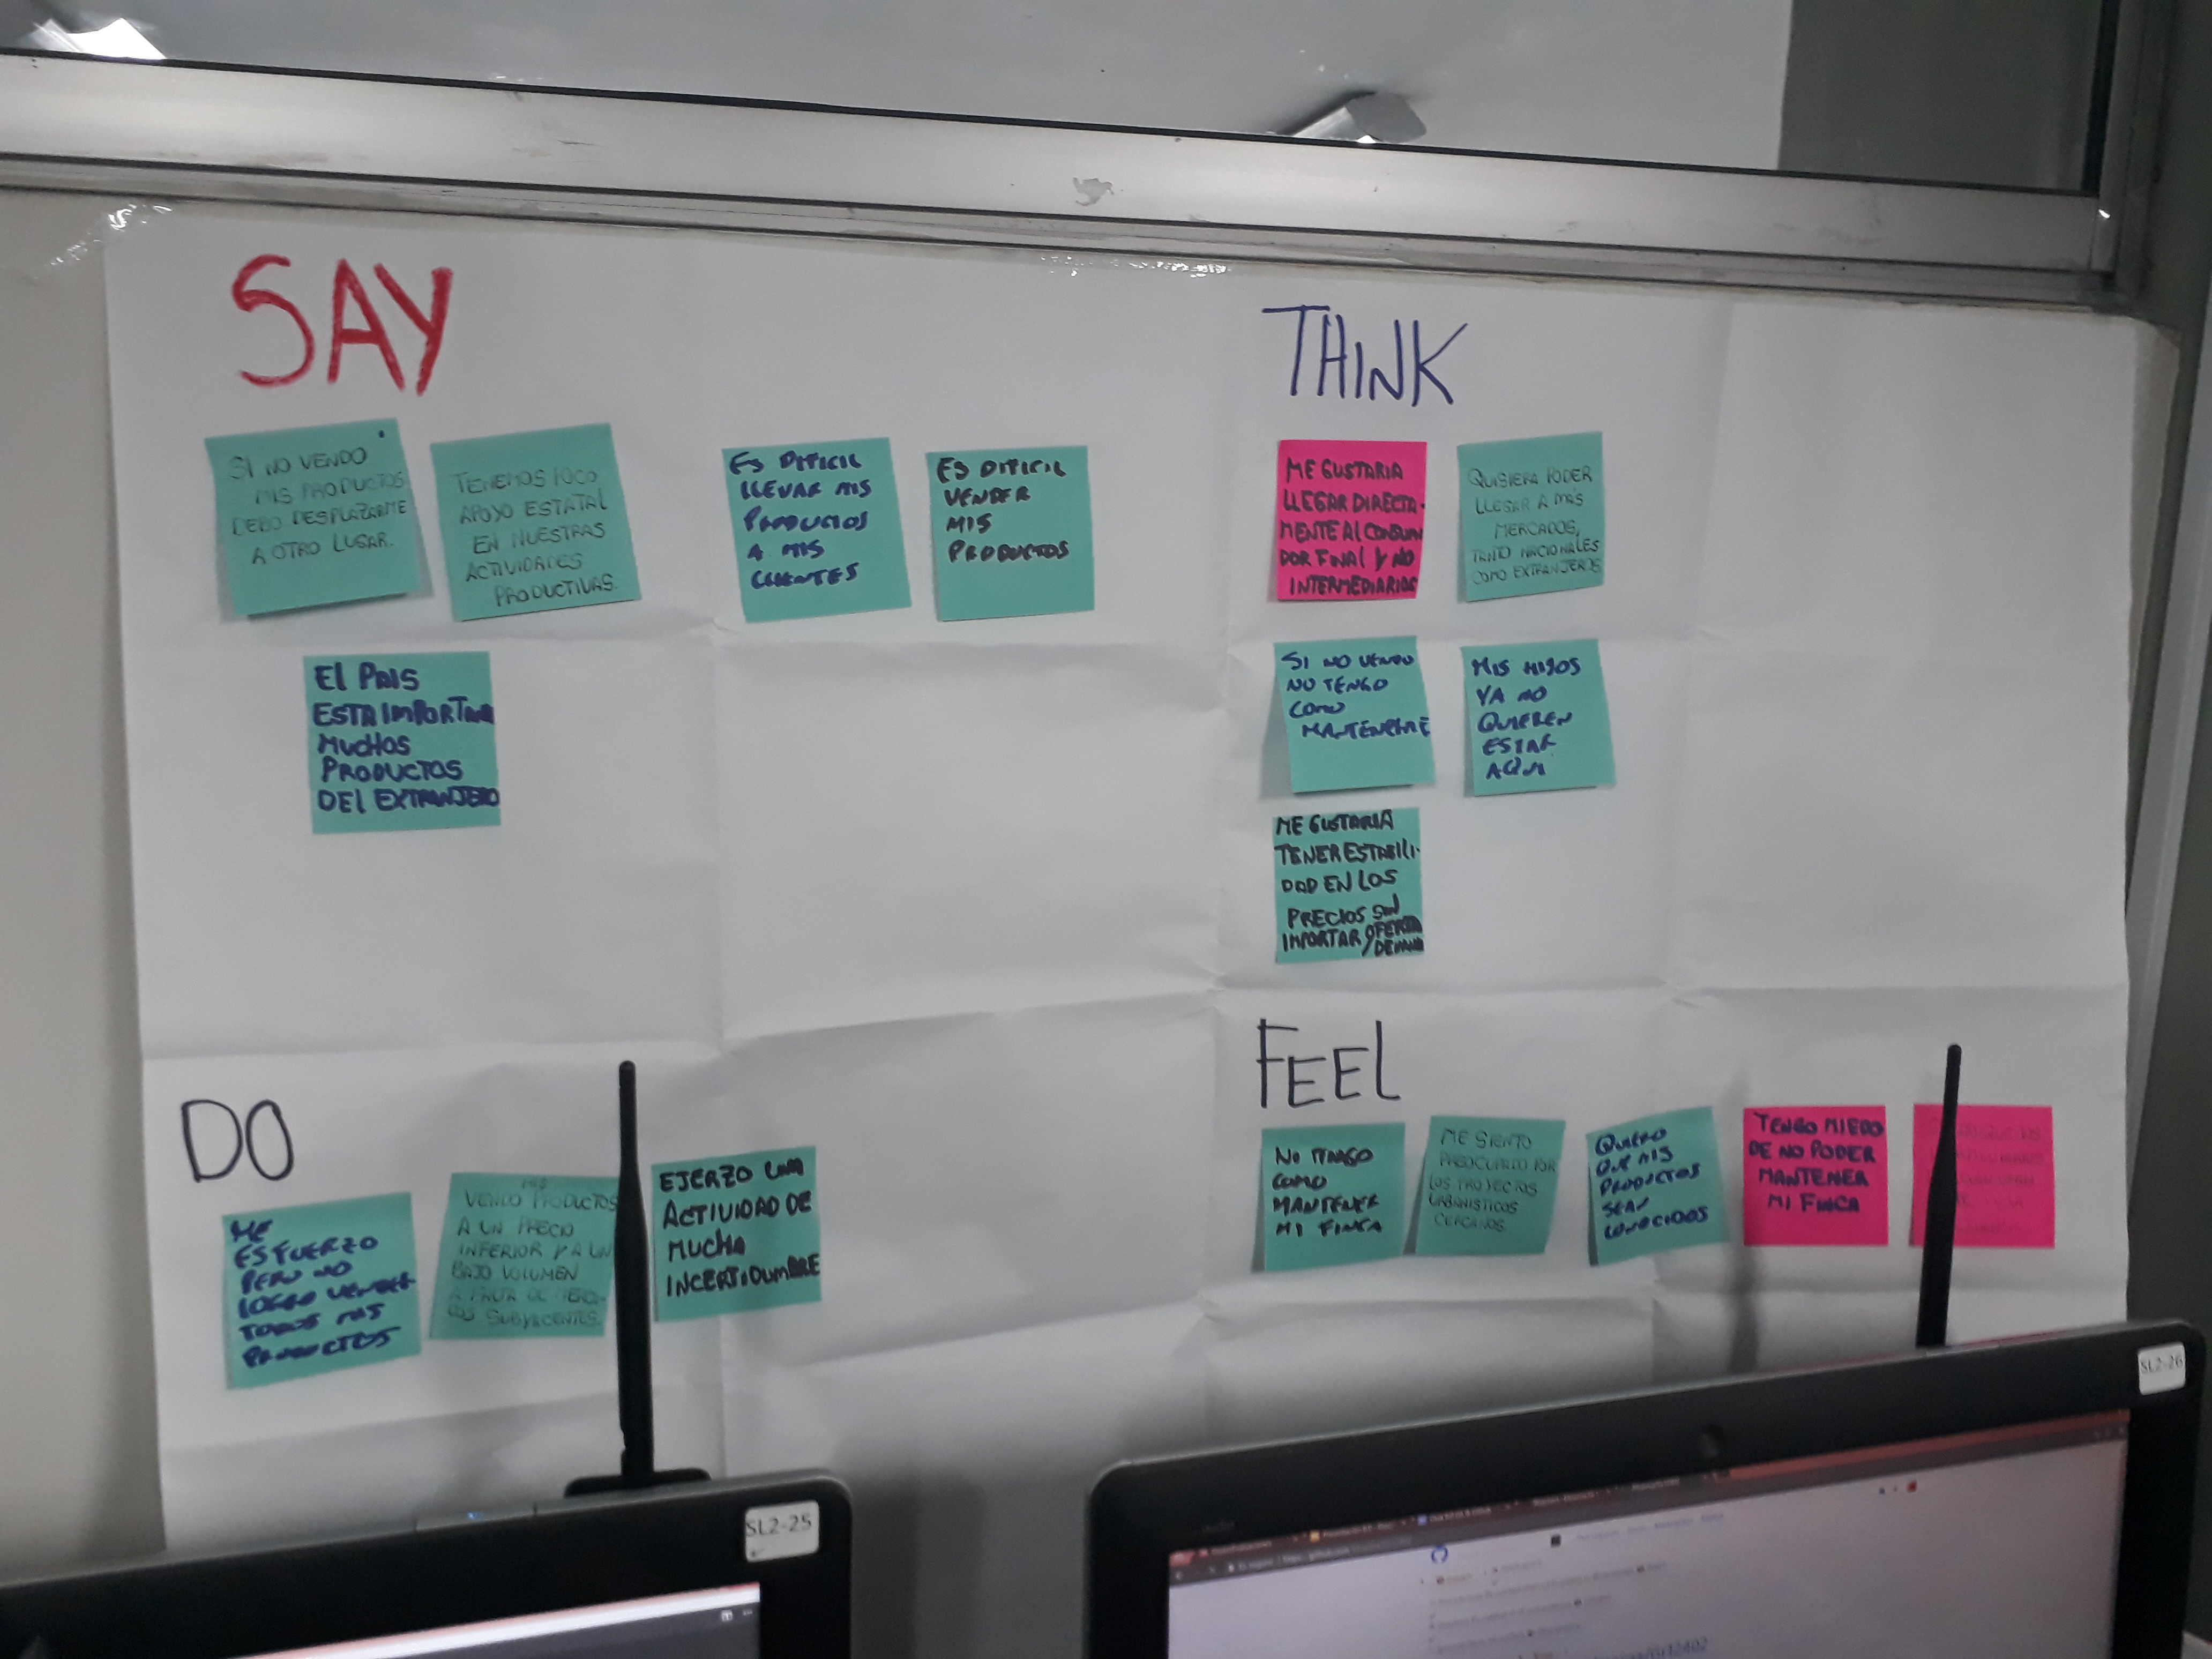 SAY
SI NO VENDO
MIS PRODUCTOS
DEBO DESPLAZARME
A OTRO LUGAR.
TENEMOS POCO
APOYO ESTATAL
EN NUESTRAS
ACTIVIDADES
PRODUCTIVAS.
ES DIFICIL
LLEVAR MIS
PRODUCTOS
A MIS
CLIENTES
ES DIFICIL
VENDER
MIS
PRODUCTOS
El PAIS
ESTA IMPORTANDO
MUCHOS
PRODUCTOS
DEl EXTRANJERO
THINK
ME GUSTARIA
LLEGAR DIRECTA-
MENTE Al CONSUMI
DOR FINAl Y NO
INTERMEDIARIOS
QUISIERA PODER
LLEGAR A MÁS
MERCADOS,
TANTO NACIONALES
COMO EXTRANJEROS
SI NO VENDO
NO TENGO
COMO
MANTENERME
MIS HIJOS
YA NO
QUIEREN
ESTAR
AQUI
ME GUSTARIA
TENER ESTABILI-
DAD EN LOS
PRECIOS SIN
IMPORTAR OFERTA
/DEMANDA
DO
ME
ESFUERZO
PERO NO
LOGRO VENDER
TODOS MIS
PRODUCTOS
MIS
VENDO PRODUCTOS
A UN PRECIO
INFERIOR Y A UN
BAJO VOLUMEN
SUBYACENTES.
EJERZO UNA
ACTIVIDAD DE
MUCHA
INCERTIDUMBRE
FEEl
NO TENGO
COMO
MANTENER
MI FINCA
ME SIENTO
PREOCUPADO POR
LOS PROYECTOS
URBANISTICOS
CERCANOS.
QUIERO
QUE MIS
PRODUCTOS
SEAN
CONOCIDOS
TENGO MIEDO
DE NO PODER
MANTENER
MI FINCA
SL2-25
SL2-26